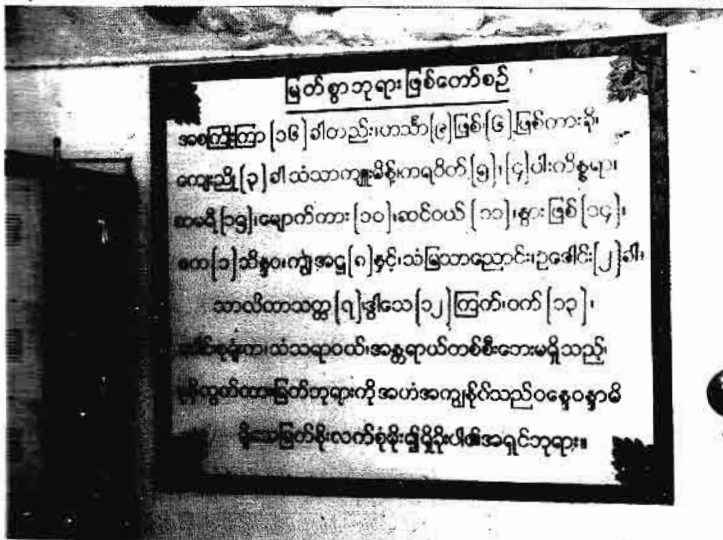 မြတ်စွာဘုရားဖြစ်တော်စဉ်
အစကြိုးကြာ [၁၆] ခါတည်း၊ဟင်္သာ[၉]ဖြစ်၊[၆]ဖြစ်ကားခို၊
ကျေးညို [၃] ခါ သံသာကျူးမိန့်၊ကရဝိတ်[၅]၊[၄]ပါးကိန္နရာ၊
စာမရီ[၁၅]၊မျောက်ကား[၁၀]၊ဆင်ဝယ် [၁၁]၊နွား ဖြစ် [၁၄]၊
ဧက[၁]သိန္ဓဝ၊ကျွဲအဋ္ဌ[၈]နှင့်၊သံမြသာညောင်း၊ဥဒေါင်း[၂]ခါ၊
သာလိကာသတ္တ[၇]ဒွါသေ[၁၂]ကြက်၊ဝက် [၁၃]၊
သံသရာဝယ်၊အန္တရာယ်တစ်စီးဘေးမရှိသည့်၊
မြတ်ဘုရားကိုအဟံအကျွန်ုပ်သည်ဝန္ဒေဝန္ဒာမိ
ရှိုးလက်စုံမိုး၍ရှိခိုးပါ၏အရှင်ဘုရား။